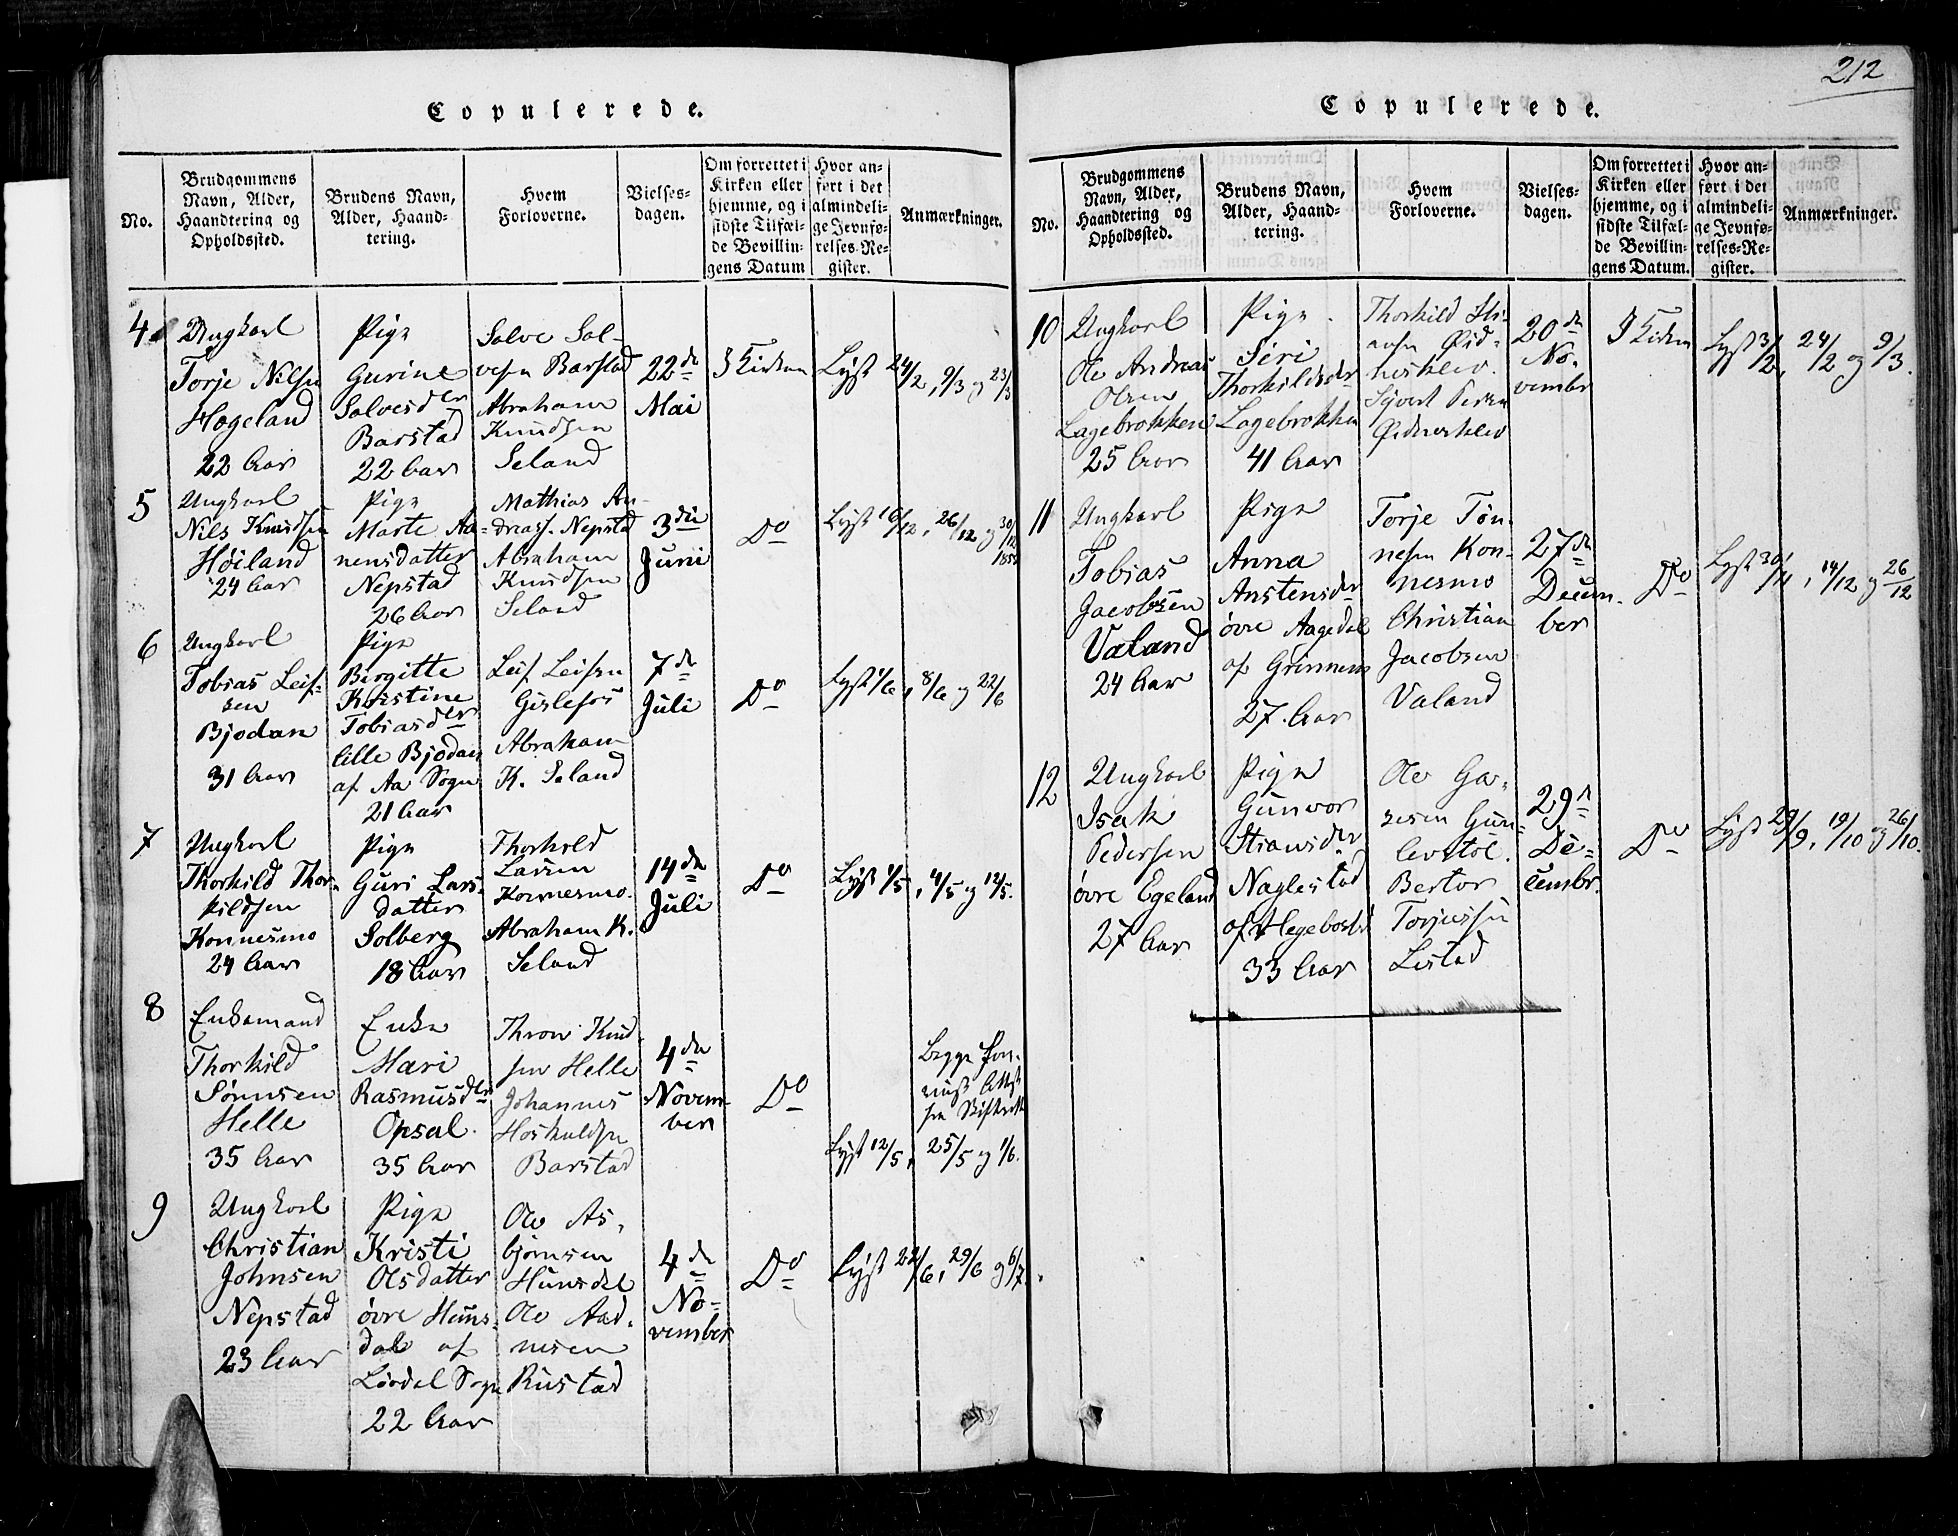 212
Copulerede.
No.
Brudgommens
Navn, Alder,
Haandtering og
Opholdssted.
Brudens Navn,
Alder, Haand-
tering.
Hvem
Forloverne.
Vielses-
dagen.
Om forrettet i
Kirken eller
hjemme, og i
sidste Tilfæl-
de Bevillin-
gens Datum
Hvor an-
ført i det
almindeli-
ge Jevnfø-
relses-Re-
gister.
Anmærkninger.
4
Ungkarl
Torje Nilsen
Høgeland
22 Aar
Pige
Gurine
Salvesdtr
Barstad
22 Aar
Salve Sal-
vesen Barstad
Abraham
Knudsen
Seland
22de
Mai
I Kirken
Lyst 24/2, 9/3 og 23/3
5
Ungkarl
Nils Knudsen
Høiland
24 Aar
Pige
Marte Aa-
nensdatter
Nepstad
26 Aar
Mathias An-
dreass. Nepstad
Abraham
Knudsen
Seland
3die
Juni
Do
Lyst 16/12, 26/12 og 30/12
6
Ungkarl
Tobias Leif-
sen
Bjodan
31 Aar
Pige
Birgitte
Kristine
Tobiasdtr
lille Bjodan
af Aa Sogn
21 Aar
Leif Leifsen
Gislefos
Abraham
K. Seland
7de
Juli
Do
Lyst 1/6, 8/6 og 22/6
7
Ungkarl
Thorkild Thor-
kildsen
Konnesmo
24 Aar
Pige
Guri Lars-
datter
Solberg
18 Aar
Thorkild
Larsen
Konnesmo.
Abraham K.
Seland
14de
Juli
Do
Lyst 1/5, 4/5 og 12/5.
8
Enkemand
Thorkild
Sørensen
Helle
35 Aar
Enke
Mari
Rasmusdtr
Opsal.
35 Aar
Thron Knud-
sen Helle
Johannes
Hoskuldsen
Barstad
4de
Novem-
ber
Do
Begge
Lyst 12/5, 25/5 og 1/6.
9
Ungkarl
Christian
Johnsen
Nepstad
23 Aar
Pige
Kristi
Olsdatter
øvre Huns-
dal af
Løvdal Sogn
22 Aar
Ole As-
bjørnsen
Hunsdal
Ole Aad-
nesen
Rustad
4de
No-
vember
Do
Lyst 22/6, 29/6 og 6/7.
Copulerede.
No.
Brudgommens
Navn, Alder,
Haandtering og
Opholdssted.
Brudens Navn,
Alder, Haand-
tering.
Hvem
Forloverne.
Vielses-
dagen.
Om forrettet i
Kirken eller
hjemme, og i
sidste Tilfæl-
de Bevillin-
gens Datum.
Hvor an-
ført i det
almindeli-
ge Jevnfø-
relses-Re-
gister.
Anmærkninger.
10
Ungkarl
Ole Andreas
Olsen
Lagebrokken
25 Aar
Pige
Siri
Thorkildsdtr
Lagebrokken
41 Aar
Thorkild
Sivert
20de
No-
vembr
I Kirken
Lyst 3/2, 24/2 og 9/3.
11
Ungkarl
Tobias
Jacobsen
Valand
24 Aar
Pige
Anna
Anstensdtr
øvre Aagedal
af
27 Aar
Torje Tøn-
nesen Kon-
nesmo
Christian
Jacobsen
Valand
27de
Decem-
ber
Do
Lyst 30/11, 14/12 og 26/12
12
Ungkarl
Isak
Pedersen
øvre Egeland
27 Aar
Pige
Gunvor
Stiansdtr
Naglestad
af Hegebostd
33 Aar
Ole Ga-
Bertor
Torjussen
Listad
29de
De-
cembr.
Do
Lyst 29/9, 19/10 og 26/10.